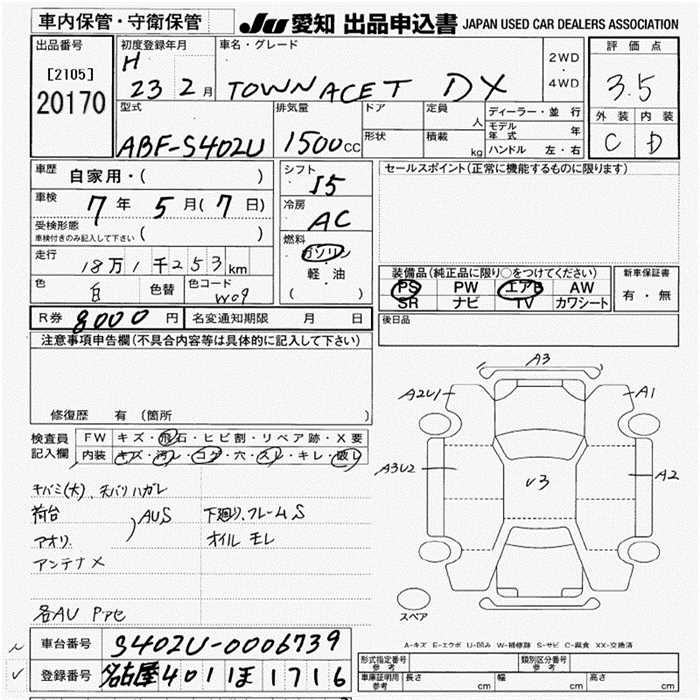 車内保管・守衛保管
JU 愛知 出品申込書 JAPAN USED CAR DEALERS ASSOCIATION
出品番号
[2105]
20170
初度登録年月
H 23 2月
車名・グレード
TOWN ACE T DX
2WD
・
4WD
評価点
3.5
外装 内装
C D
型式
ABF-S402U
排気量
1500cc
ドア
形状
定員 人
積載 kg
ディーラー・並行
モデル年式 年
ハンドル 左・右
車歴 自家用・( )
車検 7年 5月(7日)
受検形態
車検付きのみ記入して下さい ( )
走行 18万1千253km
色 白 色替 色コード W09
シフト
I5
冷房
AC
燃料
ガソリン
・
軽・油
( )
セールスポイント(正常に機能するものに限ります)
装備品(純正品に限り○をつけてください)
PS PW エアB AW
SR ナビ TV カワシート
新車保証書
有・無
後日品
R券 8000円 名変通知期限 月 日
注意事項申告欄(不具合内容等は具体的に記入して下さい)
修復歴 有 (箇所 )
検査員記入欄
FW キズ・飛石・ヒビ割・リペア跡・X要
内装 キズ・汚レ・コゲ・穴・スレ・キレ・破レ
キバミ(大)、天バリハガレ
荷台
アオリ
AUS
下廻り、フレームS
オイルモレ
アンテナX
各AU
A3
A2U1
A1
A3U2
U3
A2
スペア
A-キズ E-エクボ U-凹み W-補修跡 S-サビ C-腐食 XX-交換済
車台番号 S402U-0006739
登録番号 名古屋 401 ほ 1716
形式指定番号
参考
類別区分番号
参考
車庫証明用
参考
長さ cm
幅 cm
高さ cm